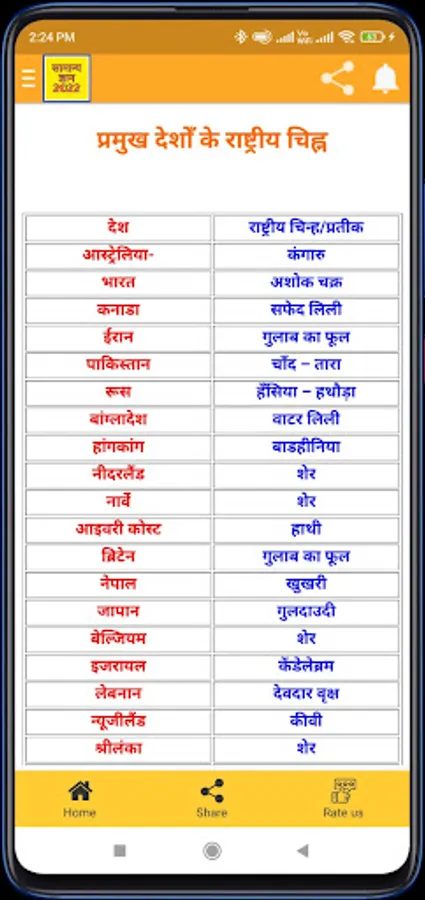 2:24 PM
Vo
WiFi
सामान्य
ज्ञान
2022
प्रमुख देशों के राष्ट्रीय चिह्न
देश राष्ट्रीय चिन्ह/प्रतीक
आस्ट्रेलिया- कंगारु
भारत अशोक चक्र
कनाडा सफेद लिली
ईरान गुलाब का फूल
पाकिस्तान चाँद – तारा
रूस हँसिया – हथौड़ा
बांग्लादेश वाटर लिली
हांगकांग बाडहीनिया
नीदरलैंड शेर
नार्वे शेर
आइवरी कोस्ट हाथी
ब्रिटेन गुलाब का फूल
नेपाल खुखरी
जापान गुलदाउदी
बेल्जियम शेर
इजरायल केंडेलेब्रम
लेबनान देवदार वृक्ष
न्यूजीलैंड कीवी
श्रीलंका शेर
Home Share Rate us